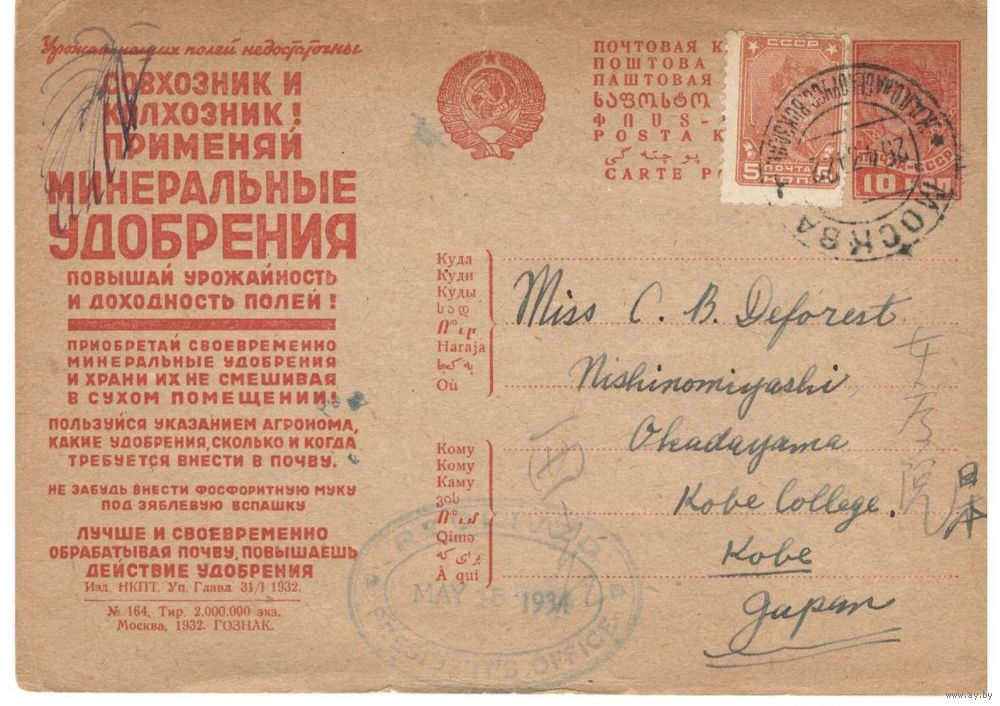 Урожаи наших полей недостаточны
СОВХОЗНИК И
КОЛХОЗНИК!
ПРИМЕНЯЙ
МИНЕРАЛЬНЫЕ
УДОБРЕНИЯ
ПОВЫШАЙ УРОЖАЙНОСТЬ
И ДОХОДНОСТЬ ПОЛЕЙ!
ПРИОБРЕТАЙ СВОЕВРЕМЕННО
МИНЕРАЛЬНЫЕ УДОБРЕНИЯ
И ХРАНИ ИХ НЕ СМЕШИВАЯ
В СУХОМ ПОМЕЩЕНИИ!
ПОЛЬЗУЙСЯ УКАЗАНИЕМ АГРОНОМА,
КАКИЕ УДОБРЕНИЯ, СКОЛЬКО И КОГДА
ТРЕБУЕТСЯ ВНЕСТИ В ПОЧВУ.
НЕ ЗАБУДЬ ВНЕСТИ ФОСФОРИТНУЮ МУКУ
ПОД ЗЯБЛЕВУЮ ВСПАШКУ
ЛУЧШЕ И СВОЕВРЕМЕННО
ОБРАБАТЫВАЯ ПОЧВУ, ПОВЫШАЕШЬ
ДЕЙСТВИЕ УДОБРЕНИЯ
Изд. НКПТ. Уп. Главл. 31/I 1932.
№ 164. Тир. 2.000.000 экз.
Москва, 1932. ГОЗНАК.
ПОЧТОВАЯ К
ПОШТОВА
ПАШТОВАЯ
ՓՈՍ-
POSTA K
CARTE P
СССР
5
ПОЧТА
10
МОСКВА
Куда
Куди
Куды
სად
Ո՞ւր
Haraja
Où
Кому
Кому
Каму
ვის
Ո՞ւմ
Qimə
À qui
Miss C. B. Deforest
Nishinomiyashi
Okadayama
Kobe College.
Kobe
Japan
女学院
日本
MAY 15 1934
OFFICE
www.ay.by